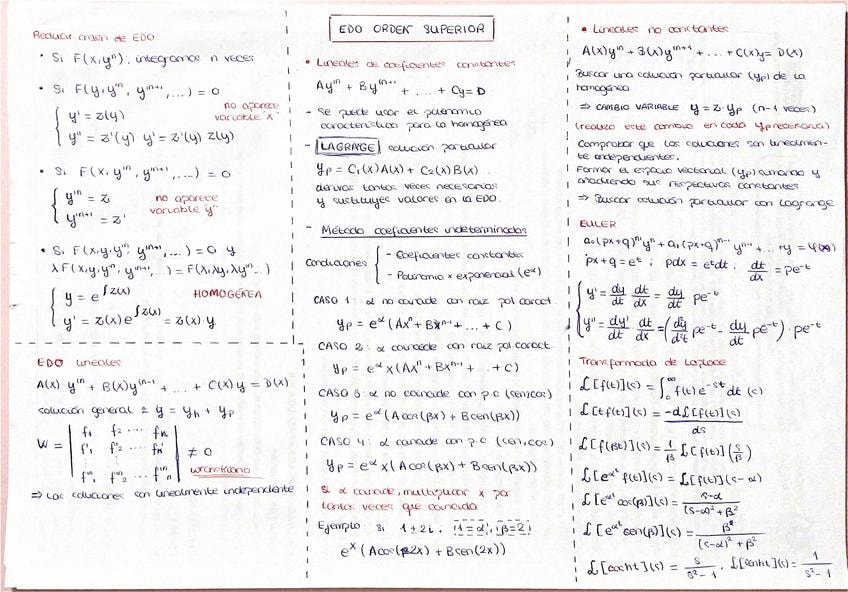 Reducir orden de EDO
• Si F(x,yⁿ), integramos n veces
• Si F(y,yⁿ, yⁿ⁺¹,...) = 0
no aparece variable x
y' = z(y)
y'' = z'(y) y' = z'(y) z(y)
• Si F(x,yⁿ, yⁿ⁺¹,...) = 0
yⁿ = z
yⁿ⁺¹ = z'
no aparece variable "y"
• Si F(x,y,yⁿ, yⁿ⁺¹,...) = 0 y
λF(x,y,yⁿ, yⁿ⁺¹,...) = F(x,λy,λyⁿ...)
y = e^∫z(x)
HOMOGÉNEA
y' = z(x) e^∫z(x) = z(x)·y
EDO lineales
A(x)·yⁿ + B(x)yⁿ⁻¹ + ... + C(x)y = D(x)
solución general ≡ y = yₕ + yₚ
W = | f₁ f₂ ... fₙ |
| f'₁ f'₂ ... fₙ' | ≠ 0
| fⁿ₁ fⁿ₂ ... fⁿₙ |
wronskiano
⇒ Las soluciones son linealmente independiente
EDO ORDEN SUPERIOR
• Lineales de coeficientes constantes
Ayⁿ + Byⁿ⁺¹ + .... + Cy = D
- Se puede usar el polinomio
característico para la homogénea
- LAGRANGE solución particular
yₚ = C₁(x)A(x) + C₂(x)B(x)
derivas tantas veces necesarias
y sustituyes valores en la EDO.
- Método coeficientes indeterminados
Condiciones
- Coeficientes constantes
- Polinomio x exponencial (e^α)
CASO 1: α no coincide con raíz pol caract.
yₚ = e^α (Axⁿ + Bxⁿ⁻¹ + ... + C)
CASO 2: α coincide con raíz pol caract.
yₚ = e^α x(Axⁿ + Bxⁿ⁻¹ + ... + C)
CASO 3: α no coincide con p.c (sen,cos)
yₚ = e^α (Acos(βx) + Bsen(βx))
CASO 4: α coincide con p.c (sen,cos)
yₚ = e^α x(Acos(βx) + Bsen(βx))
Si α coincide, multiplicar x por
tantas veces que coincida
Ejemplo: si 1±2i. 1=α, β=2
eˣ (Acos(2x) + Bsen(2x))
• Lineales no constantes
A(x)yⁿ + B(x)yⁿ⁺¹ + ... + C(x)y = D(x)
Buscar una solución particular (yₚ) de la
homogénea
⇒ CAMBIO VARIABLE y = z·yₚ (n-1 veces)
(realizo este cambio en cada yₚ necesaria)
Comprobar que las soluciones son linealmen-
te independientes.
Formar el espacio vectorial (yₚ) sumando y
añadiendo sus respectivas constantes
⇒ Buscar solución particular con Lagrange
EULER
a₀(px+q)ⁿyⁿ + a₁(px+q)ⁿ⁻¹ yⁿ⁻¹ + ... + y = φ(x)
px+q = eᵗ ; pdx = eᵗdt . dt/dx = pe⁻ᵗ
y' = dy/dt dt/dx = dy/dt pe⁻ᵗ
y'' = dy'/dt dt/dx = (d²y/d²t pe⁻ᵗ - dy/dt pe⁻ᵗ)·pe⁻ᵗ
Transformada de Laplace
ℒ[f(t)](s) = ∫₀^∞ f(t)e⁻ˢᵗdt (s)
ℒ[tf(t)](s) = -dℒ[f(t)](s)/ds
ℒ[f(βt)](s) = 1/β ℒ[f(t)](s/β)
ℒ[e^αt f(t)](s) = ℒ[f(t)](s-α)
ℒ[e^αt cos(β)](s) = s-α/(s-α)²+β²
ℒ[e^αt sen(β)](s) = β/(s-α)²+β²
ℒ[cosht](s) = s/s²-1 . ℒ[senht](s) = 1/s²-1